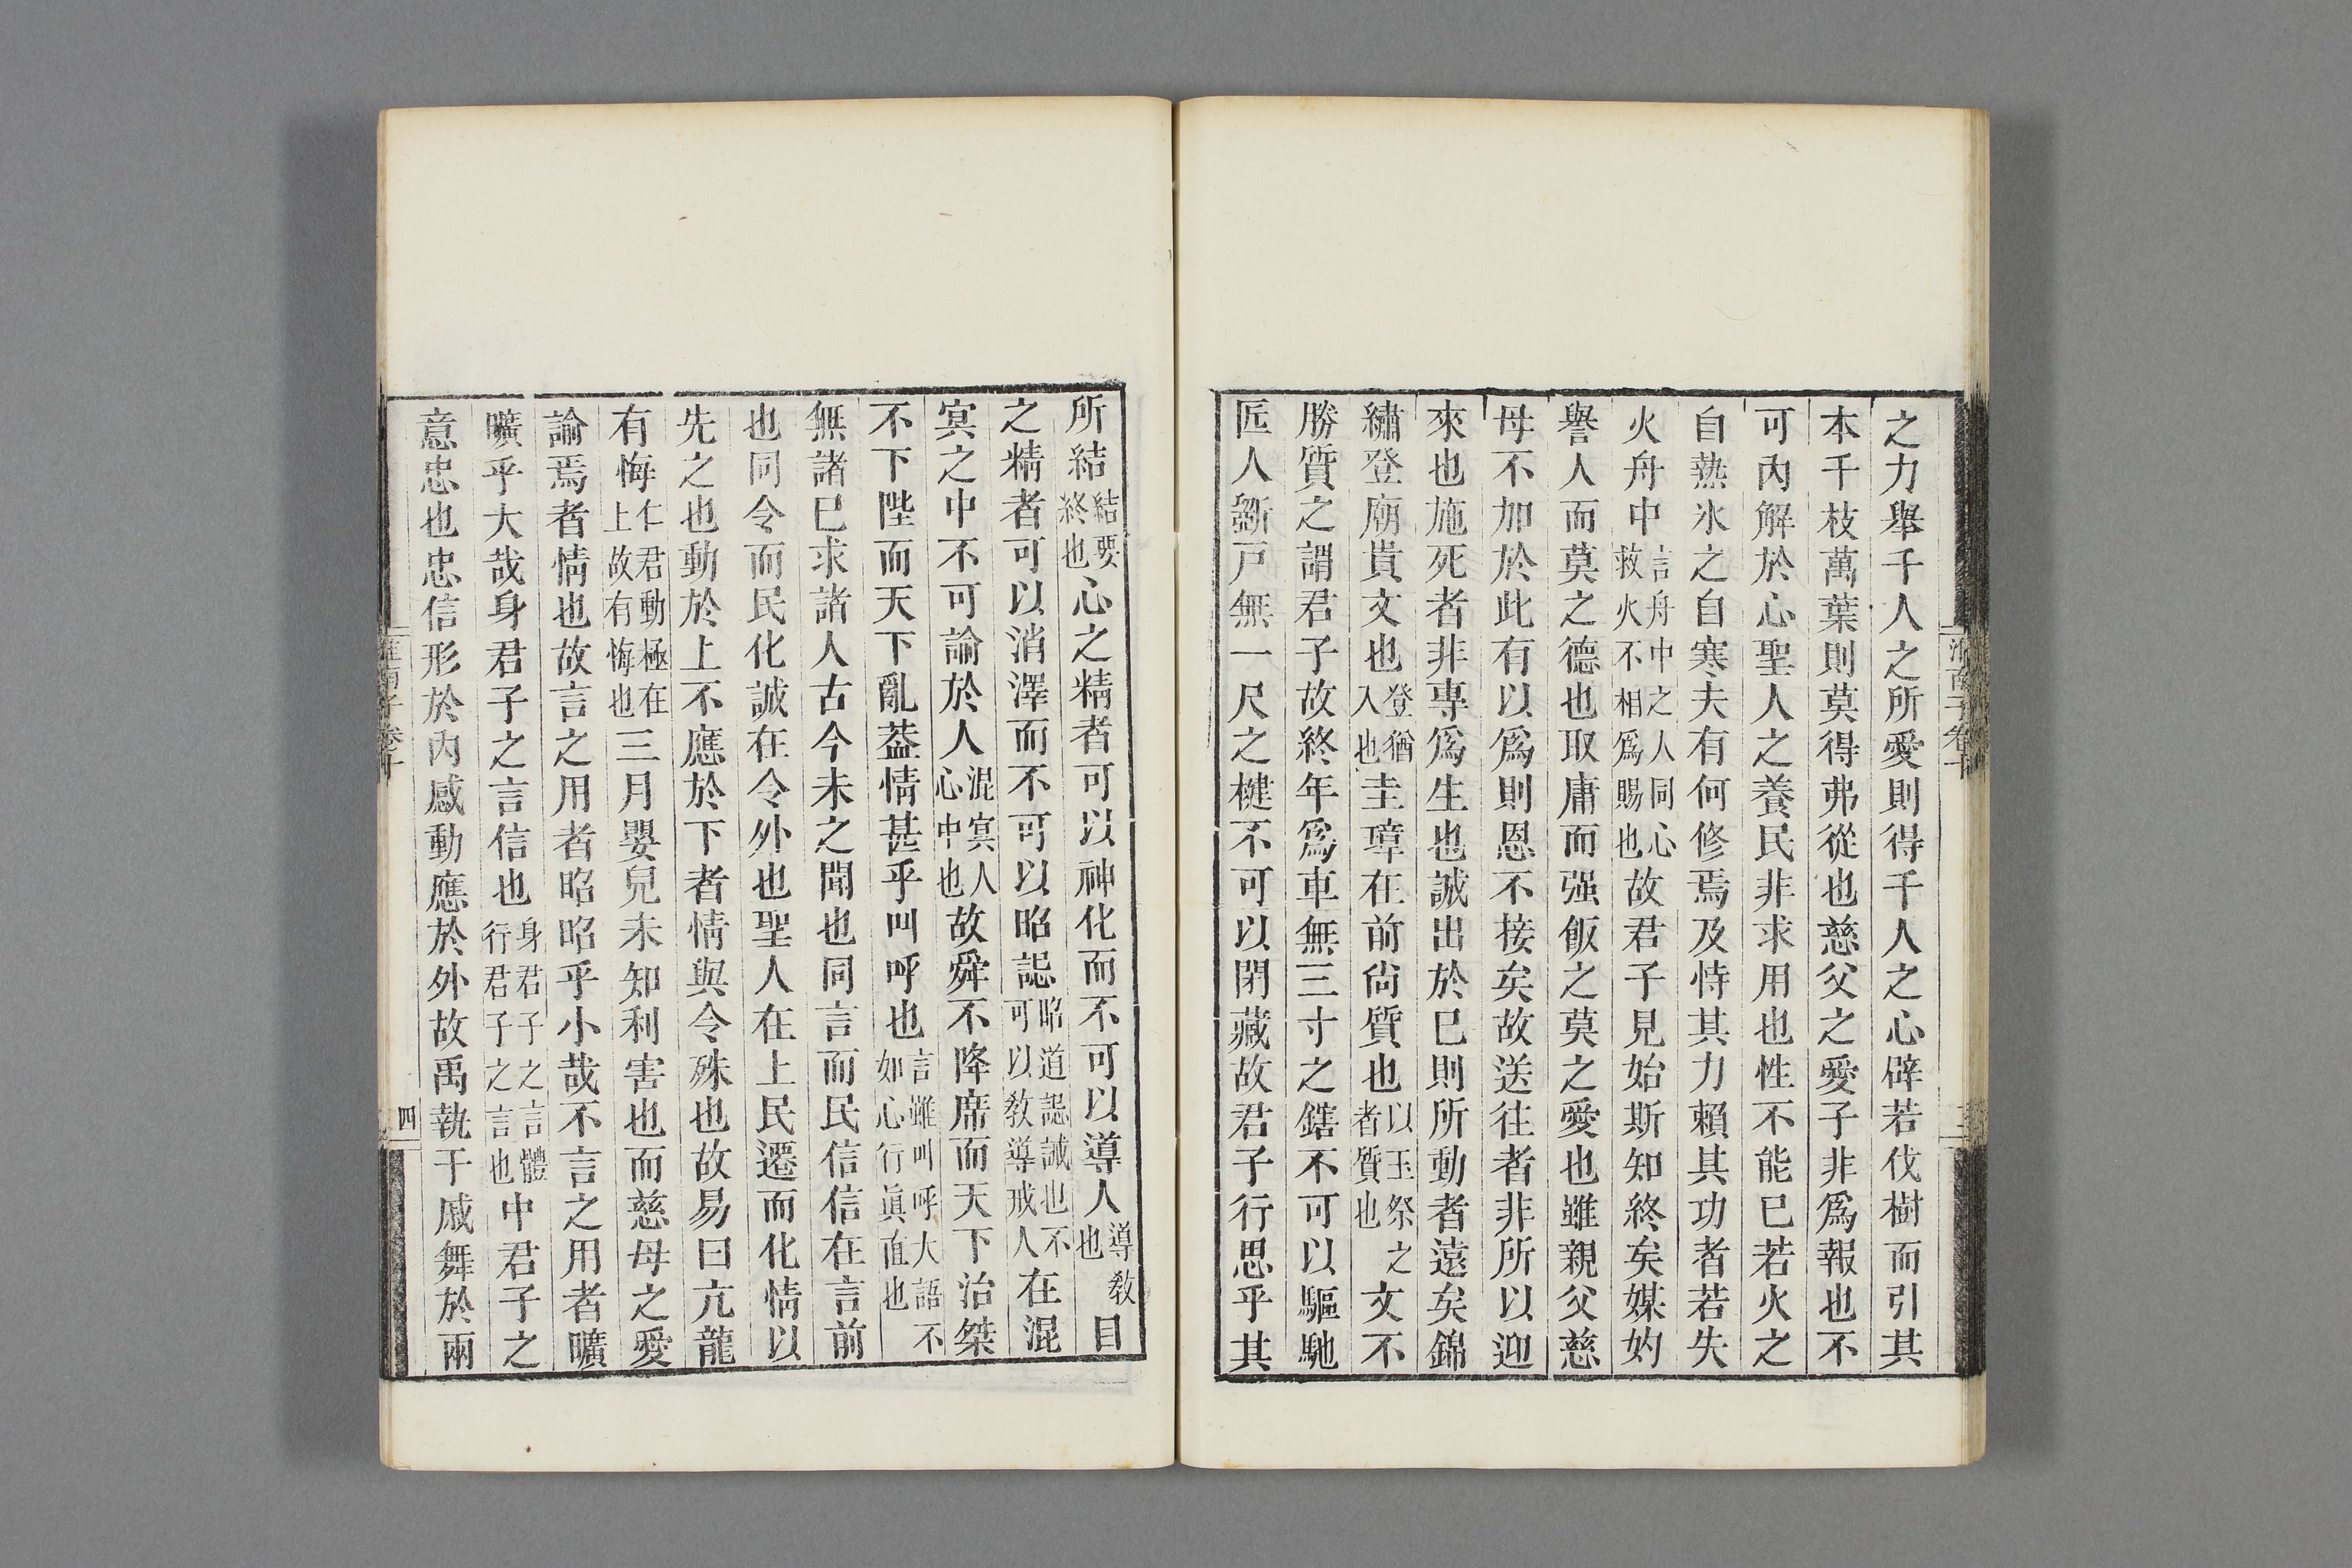 之力舉千人之所愛則得千人之心辟若伐樹而引其
本千枝萬葉則莫得弗從也慈父之愛子非爲報也不
可內解於心聖人之養民非求用也性不能已若火之
自熱氷之自寒夫有何修焉及恃其力賴其功者若失
火舟中言舟中之人同心救火不相爲賜也故君子見始斯知終矣媒妁
譽人而莫之德也取庸而强飯之莫之愛也雖親父慈
母不加於此有以爲則恩不接矣故送往者非所以迎
來也施死者非專爲生也誠出於已則所動者遠矣錦
繡登廟貴文也登猶入也圭璋在前尚質也以玉祭之者質也文不
勝質之謂君子故終年爲車無三寸之鎋不可以驅馳
匠人斲戸無一尺之楗不可以閉藏故君子行思乎其
淮南子卷十
所結結要終也心之精者可以神化而不可以導人導教也目
之精者可以消澤而不可以昭誋昭道誋誡也不可以敎導戒人在混
冥之中不可諭於人混冥人心中也故舜不降席而天下治桀
不下陛而天下亂葢情甚乎叫呼也言雖叫呼大語不如心行眞直也
無諸已求諸人古今未之聞也同言而民信信在言前
也同令而民化誠在令外也聖人在上民遷而化情以
先之也動於上不應於下者情與令殊也故易曰亢龍
有悔仁君動極在上故有悔也三月嬰兒未知利害也而慈母之愛
諭焉者情也故言之用者昭昭乎小哉不言之用者曠
曠乎大哉身君子之言信也身君子之言體行君子之言也中君子之
意忠也忠信形於內感動應於外故禹執干戚舞於兩
淮南子卷十
四